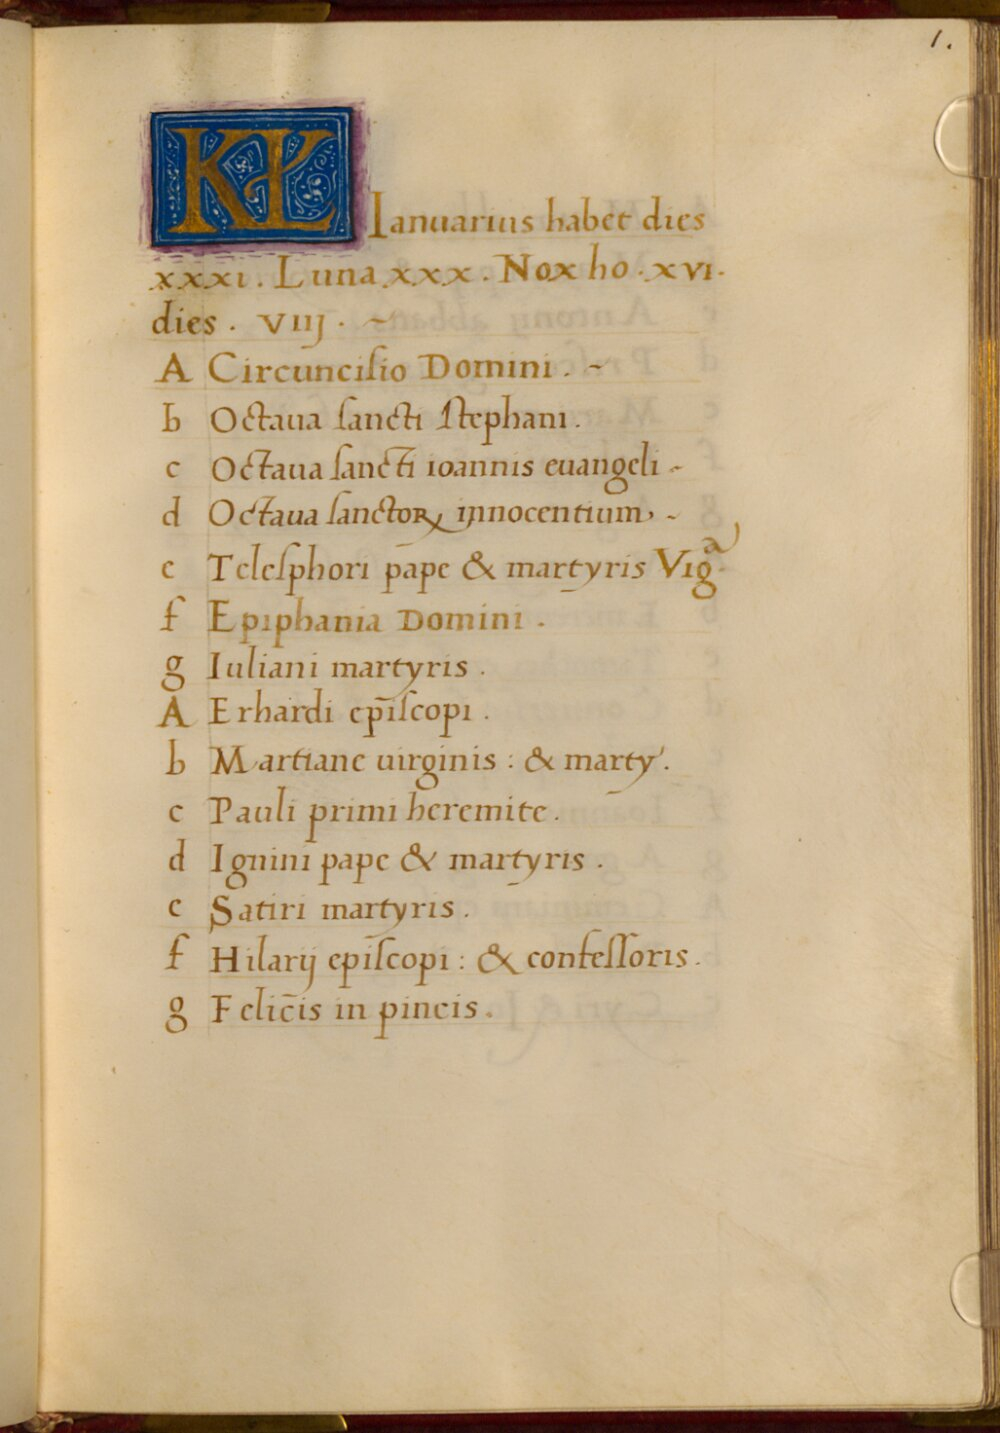 1.
KL Ianuarius habet dies
xxxi. Luna xxx. Nox ho. xvi.
dies. viij. ~
A Circunciſio Domini. ~
b Octaua ſancti ſtephani.
c Octaua ſancti ioannis euangeli ~
d Octaua ſanctoꝝ innocentium, ~
e Teleſphori pape & martyris Vigᵃ.
f Epiphania Domini.
g Iuliani martyris.
A Erhardi ep̄iſcopi.
b Martiane uirginis: & marty'.
c Pauli primi heremite.
d Ignini pape & martyris.
e Satiri martyris.
f Hilarij ep̄iſcopi: & confeſſoris.
g Felic̄is in pincis.